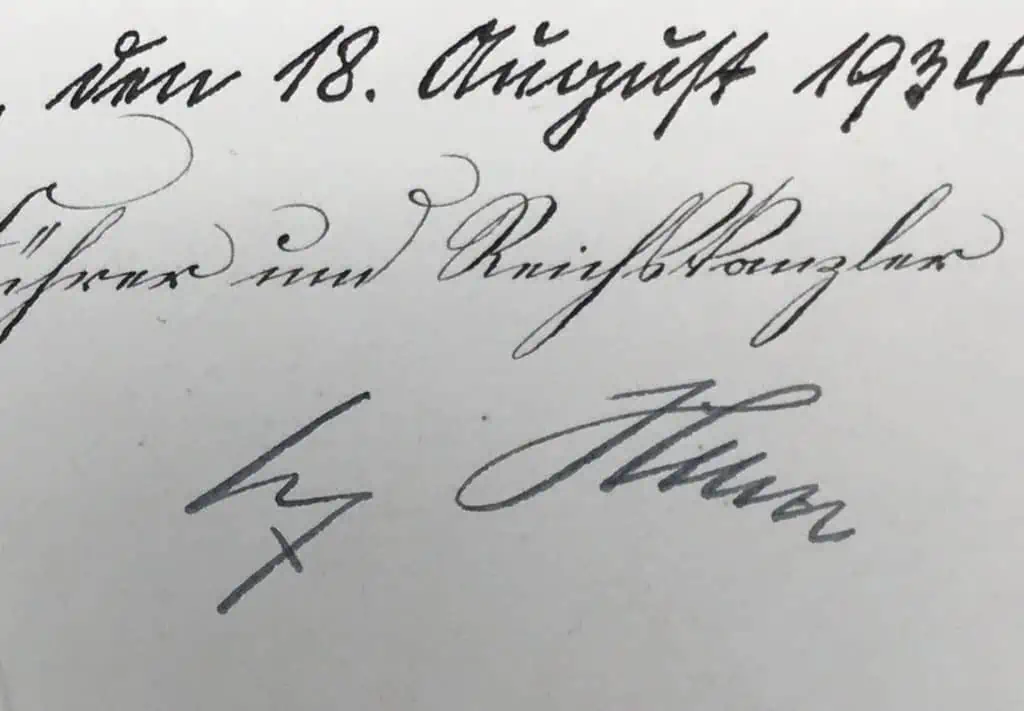 , den 18. August 1934
Führer und Reichskanzler